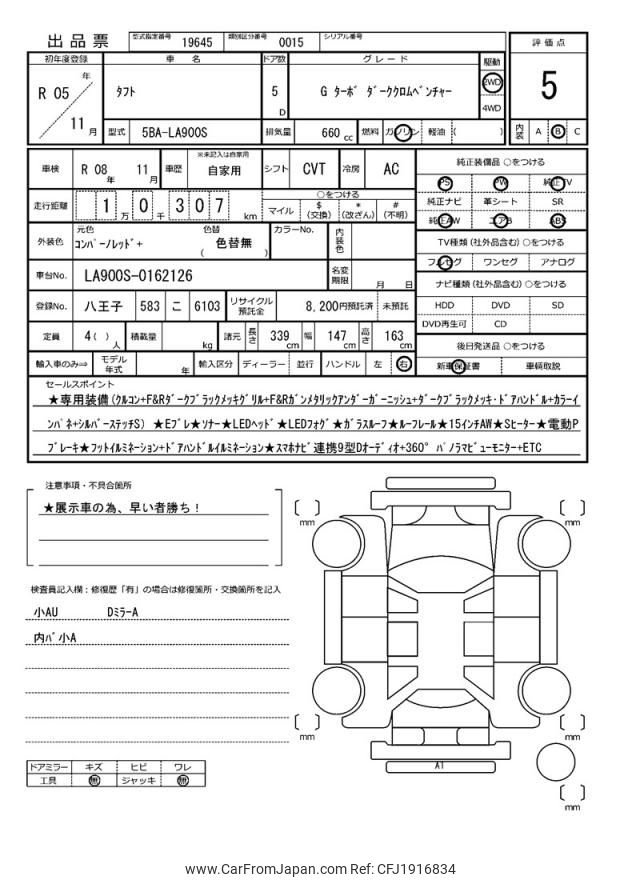 出品票 型式指定番号 19645 類別区分番号 0015 シリアル番号
評価点
5
内装 A B C
初年度登録 車名 ドア数 グレード 駆動
R 05 年 11 月
タフト
5 D
G ターボ ダーククロムベンチャー
2WD
4WD
型式 5BA-LA900S 排気量 660 cc 燃料 ガソリン 軽油 ( )
車検 R 08 年 11 月 車歴 ※未記入は自家用 自家用 シフト CVT 冷房 AC
走行距離 1 万 0 千 3 0 7 km
○をつける
マイル $ (交換) * (改ざん) # (不明)
外装色 元色 コンパーノレッド+ 色替 ( 色替無 ) カラーNo. 内装色
車台No. LA900S-0162126 名変期限 月 日
登録No. 八王子 583 こ 6103 リサイクル預託金 8,200円預託済 未預託
定員 4( ) 人 積載量 kg 諸元 長さ 339 cm 幅 147 cm 高さ 163 cm
輸入車のみ⇒ モデル年式 年 輸入区分 ディーラー 並行 ハンドル 左 右
純正装備品 ○をつける
PS PW 純正TV
純正ナビ 革シート SR
純正AW エアB ABS
TV種類(社外品含む)○をつける
フルセグ ワンセグ アナログ
ナビ種類(社外品含む)○をつける
HDD DVD SD
DVD再生可 CD
後日発送品 ○をつける
新車保証書 車輌取説
セールスポイント
★専用装備(クルコン+F&Rダークブラックメッキグリル+F&Rガンメタリックアンダーガーニッシュ+ダークブラックメッキ・ドアハンドル+カラーイ
ンパネ+シルバーステッチS) ★Eブレ★ソナー★LEDヘッド★LEDフォグ★ガラスルーフ★ルーフレール★15インチAW★Sヒーター★電動P
ブレーキ★フットイルミネーション+ドアハンドルイルミネーション★スマホナビ連携9型Dオーディオ+360° パノラマビューモニター+ETC
注意事項・不具合箇所
★展示車の為、早い者勝ち!
検査員記入欄:修復歴「有」の場合は修復箇所・交換箇所を記入
小AU DミラーA
内バ小A
ドアミラー キズ ヒビ ワレ
工具 無 ジャッキ 無
mm
mm
mm
mm
mm
A1
www.CarFromJapan.com Ref: CFJ1916834